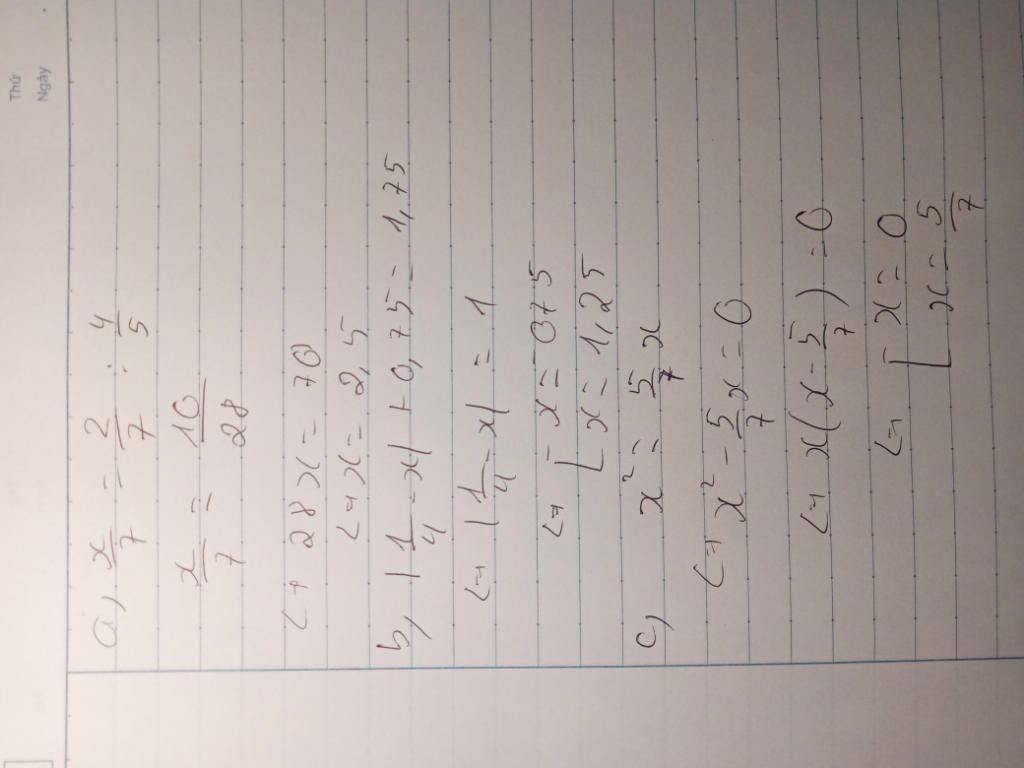 Thứ
Ngày
a, x/7 = 2/7 : 4/5
x/7 = 10/28
<=> 28x = 70
<=> x = 2,5
b, |1/4 - x| + 0,75 = 1,75
<=> |1/4 - x| = 1
<=> [ x = -075
[ x = 1,25
c, x² = 5/7 x
<=> x² - 5/7 x = 0
<=> x(x - 5/7) = 0
<=> [ x = 0
[ x = 5/7